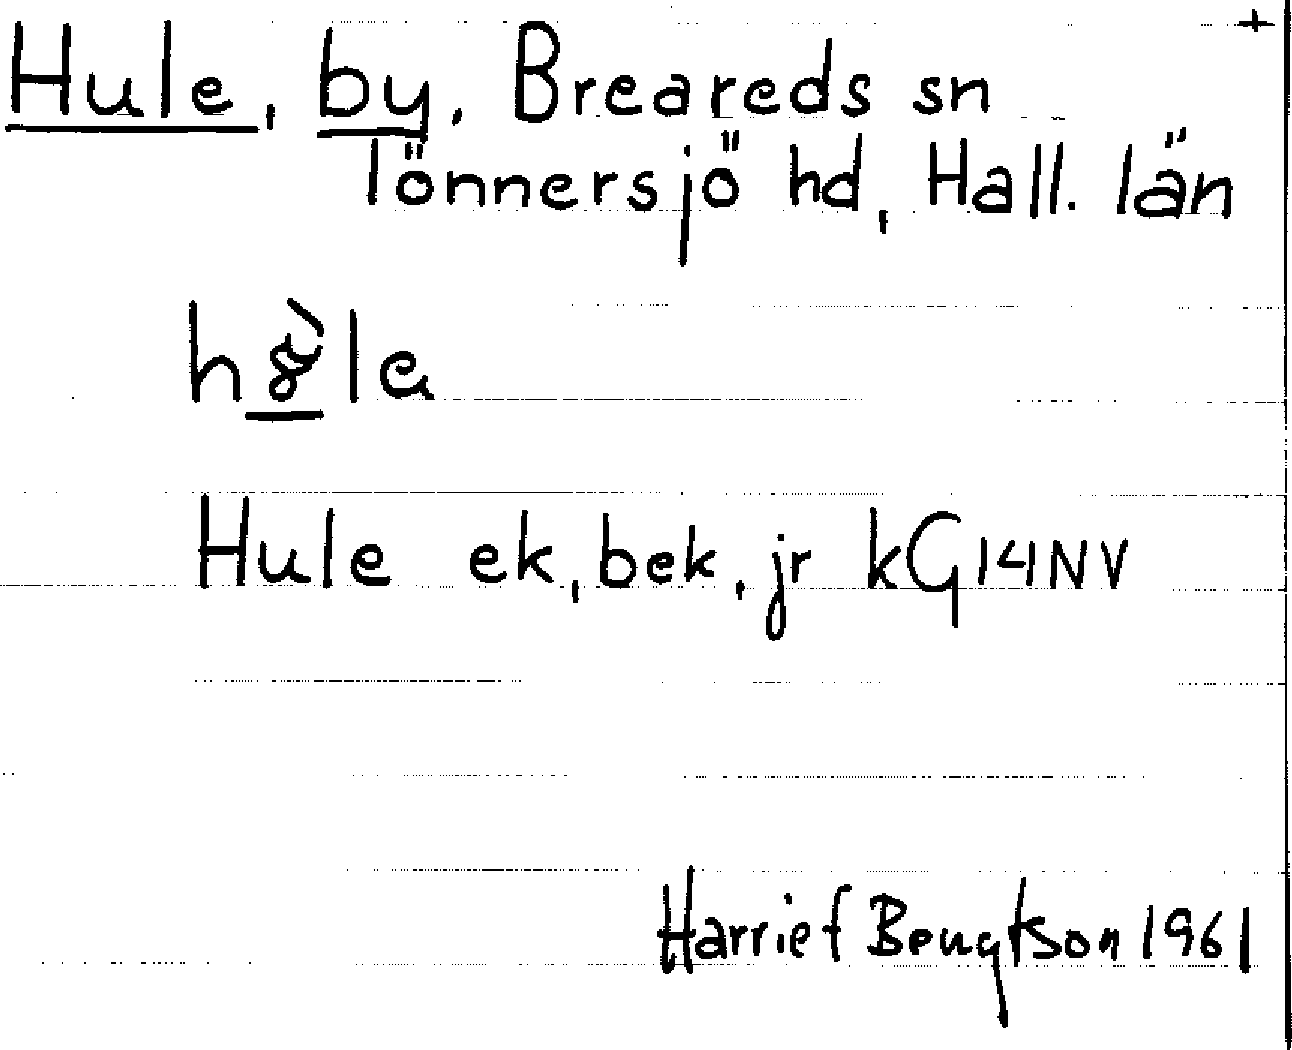 +
Hule, by, Breareds sn
Tönnersjö hd, Hall. län
Hule ek, bek, jr kG14NV
Harriet Bengtson 1961